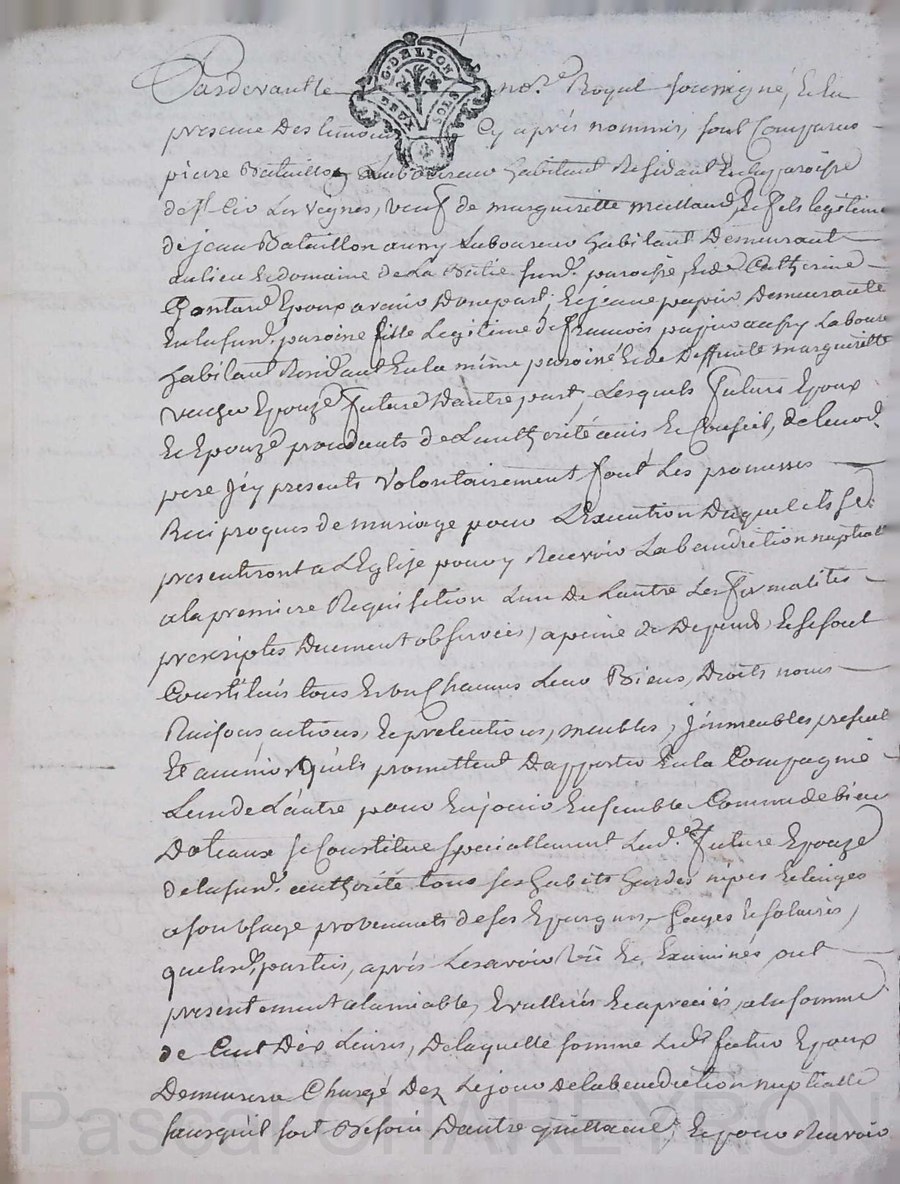 G. DE LYON
DEUX SOLS
Pardevant le no.re Royal soussigné, Et En
presence Des temoins Cy après nommés, sont Comparus
pierre Bataillon Laboureur habitant Residant En la paroisse
de st. Cir Les Vignes, veuf de marguerite meilland, Et fils legitime
de jean Bataillon aussy Laboureur habitant Demeurant
au lieu Et domaine de La Batie susd. paroisse, Et de Catherine
Pontard Epoux avenir Dune part; Et jeane papin Demeurante
En la susd. paroisse fille Legitime de francois papin aussy Laboureur
habitant Residant En la même paroisse Et de Deffunte marguerite
Epouze future Dautre part, Lesquels future Epoux
Et Epouze procedants de Lauthorité avis Et Conseil, de leursd.
pere Jcy presents Volontairement font Les promesses
Reciproques de mariage pour LExecution Duquel ils se
presenteront a LEglise pour y Recevoir La benediction nuptialle
a la premiere Requisition Lun De Lautre Les formalités
prescriptes Duement observées, a peine de Depends, Et se sont
Constitués tous Et un Chacuns Leur Biens, Droits noms
Raisons, actions, Et pretentions, meubles, Jmmeubles present
Et avenir Quils promettent Dapporter En la Compagnie
Lun de Lautre pour En jouir Ensemble Comme de bien
Dotaux se Constitue specialement Lad.e future Epouze
De la susd. authorité tous ses habits hardes nipes Et linges
a son Usage provenants de ses Epargnes, Gages Et salaires,
que lesd. parties, après Les avoir Vû Et Examinés ont
presentement a lamiable, Evalliés Et apreciés, a la somme
de Cent Dix Livres, De laquelle somme Led. futur Epoux
Demeurera Chargé Dez Le jour De la benediction nuptialle
sans quil soit Besoin Dautre quittance, Et pour Recevoir
Pascal CHAREYRON